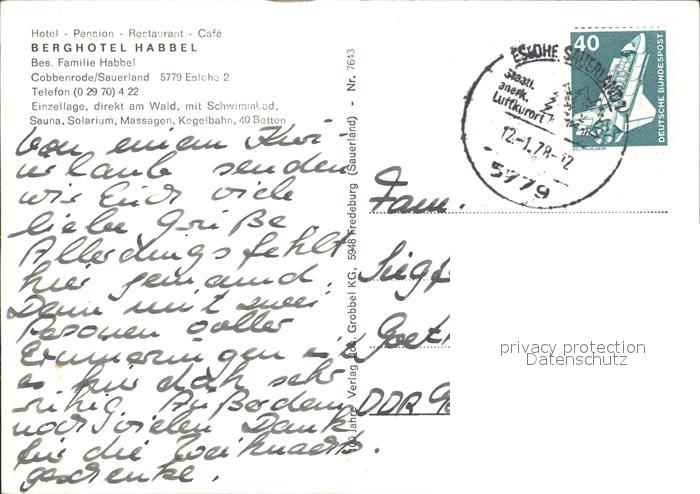 Hotel - Pension - Restaurant - Café
BERGHOTEL HABBEL
Bes. Familie Habbel
Cobbenrode/Sauerland 5779 Eslohe 2
Telefon (0 29 70) 4 22
Einzellage, direkt am Wald, mit Schwimmbad,
Sauna, Solarium, Massagen, Kegelbahn, 40 Betten
Von einem Kurz
urlaub senden
wir Euch viele
liebe Grüße
Allerdings fehlt
hier jemand.
Denn mit zwei
Personen voller
Erinnerungen
es hier doch sehr
ruhig. Außerdem
noch vielen Dank
für die Weihnachts
geschenke.
100 Jahre Verlag Jos. Grobbel KG, 5948 Fredeburg (Sauerland) - Nr. 7643
ESLOHE SAUERLAND
Staatl.
anerk.
Luftkurort
12.-1.78-12
5779
40
DEUTSCHE BUNDESPOST
WELTRAUMLABOR
Fam.
Siegf
DDR
privacy protection
Datenschutz